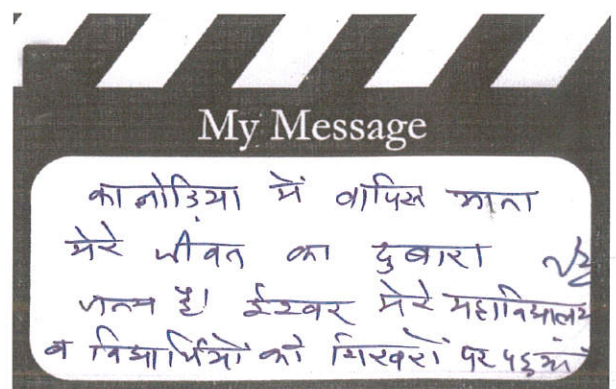 My Message
कानोड़िया में वापिस आना
मेरे जीवन का दुबारा
जन्म है। ईश्वर मेरे महाविद्यालय
व विद्यार्थियों को शिखरों पर पहुचायें